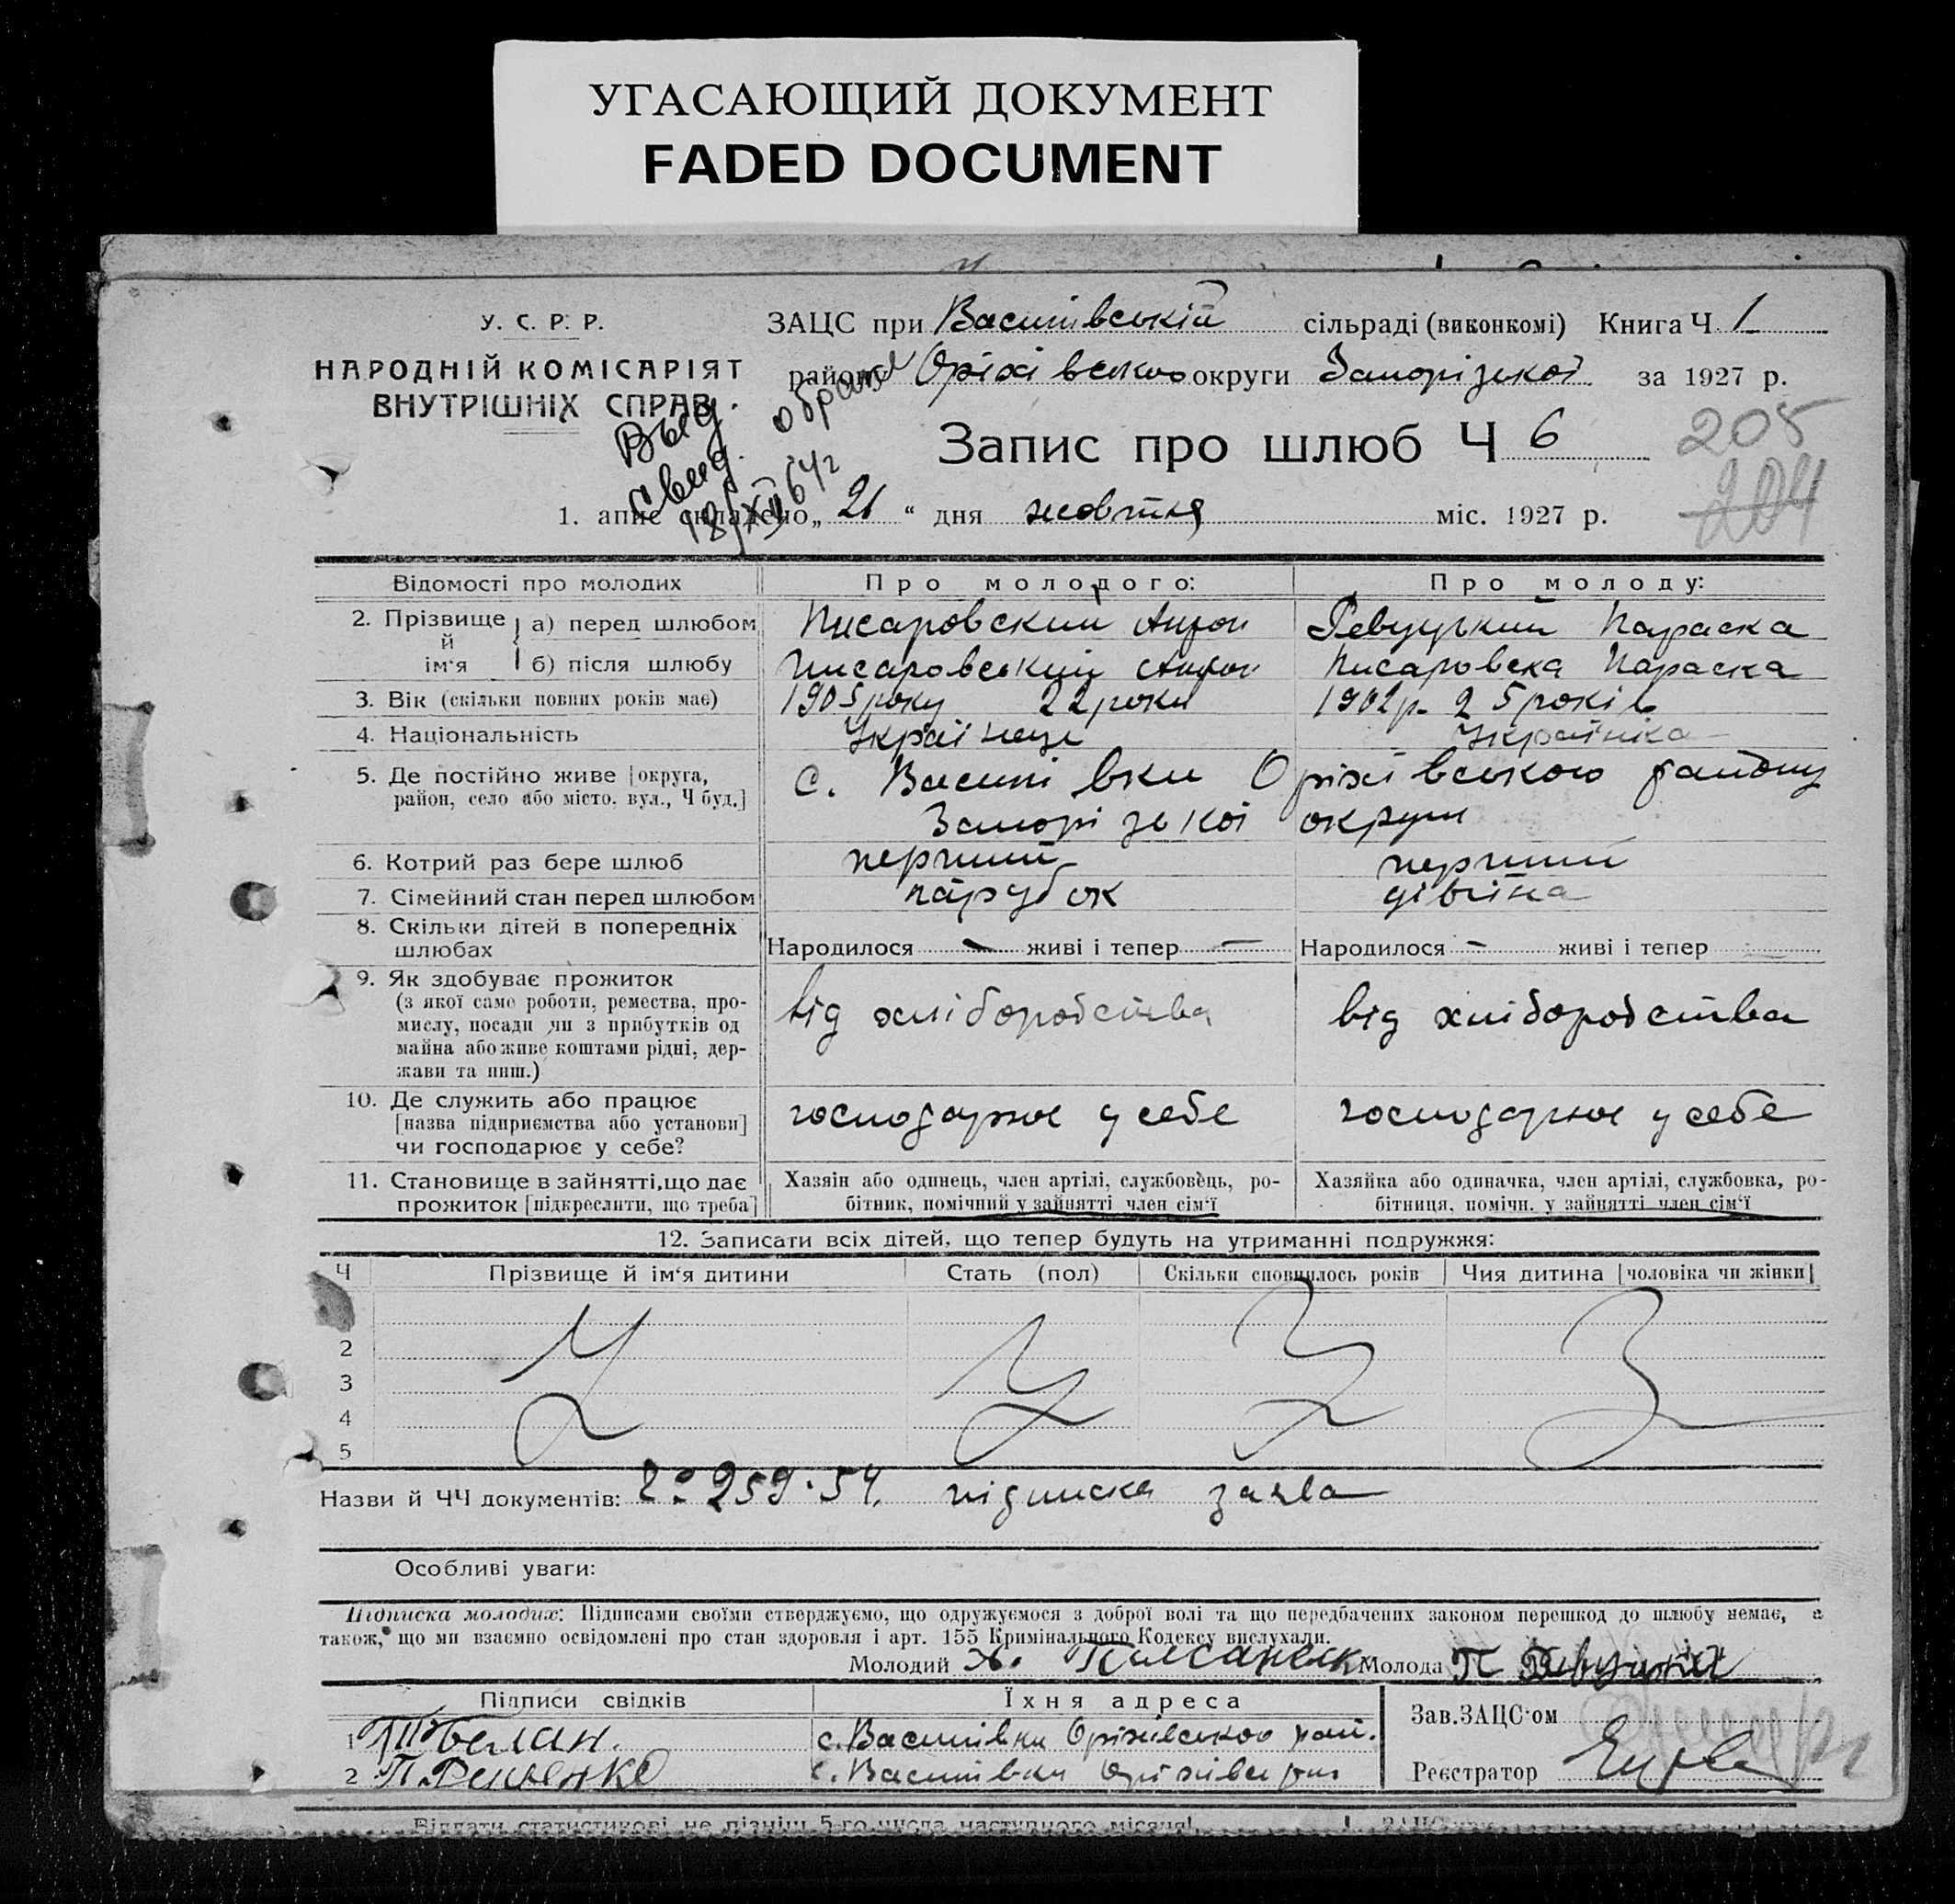 УГАСАЮЩИЙ ДОКУМЕНТ
FADED DOCUMENT
У. С. Р. Р.
НАРОДНІЙ КОМІСАРІЯТ
ВНУТРІШНІХ СПРАВ.
ЗАЦС при Василівській сільраді (виконкомі) Книга Ч 1
району Оріхівсько округи Запорізької за 1927 р.
Выд.
свид.
18/XII 64 г
Запис про шлюб Ч 6
205
204
1. апис складено „ 21 “ дня жовтня міс. 1927 р.
Відомості про молодих Про молодого: Про молоду:
2. Прізвище й ім‘я
а) перед шлюбом Писаровский Антон Ревуцький Параска
б) після шлюбу Писаровський Антон Писаровска Параска
3. Вік (скільки повних років має) 1905 року 22 роки 1902 р. 25 років
4. Національність Українець Українка
5. Де постійно живе [округа,
район, село або місто, вул., Ч буд.]
с. Василівки Оріхівського району
Запорізької округи
6. Котрий раз бере шлюб перший перший
7. Сімейний стан перед шлюбом парубок дівчина
8. Скільки дітей в попередніх
шлюбах
Народилося – живі і тепер – Народилося – живі і тепер
9. Як здобуває прожиток
(з якої саме роботи, ремества, про-
мислу, посади чи з прибутків од
майна або живе коштами рідні, дер-
жави та инш.)
від хліборобства від хліборобства
10. Де служить або працює
[назва підприємства або установи]
чи господарює у себе?
господарює у себе господарює у себе
11. Становище в зайнятті, що дає
прожиток [підкреслити, що треба]
Хазяін або одинець, член артілі, службовець, ро-
бітник, помічний у зайнятті член сім‘ї
Хазяйка або одиначка, член артілі, службовка, ро-
бітниця, помічн. у зайнятті член сім‘ї
12. Записати всіх дітей, що тепер будуть на утриманні подружжя:
Ч Прізвище й ім‘я дитини Стать (пол) Скільки сповнилось років Чия дитина [чоловіка чи жінки]
2
3
4
5
Назви й ЧЧ документів: 259·54. підписка заява
Особливі уваги:
Підписка молодих: Підписами своїми стверджуємо, що одружуємося з доброї волі та що передбачених законом перешкод до шлюбу немає, а
також, що ми взаємно освідомлені про стан здоровля і арт. 155 Кримінального Кодексу вислухали.
Молодий Молода П
Підписи свідків Їхня адреса
1 с. Василівки Оріхівського рай.
2 с. Василівки
Зав. ЗАЦС‘ом
Реєстратор
Віддати статистикові не пізніш 5-го числа наступного місяця!